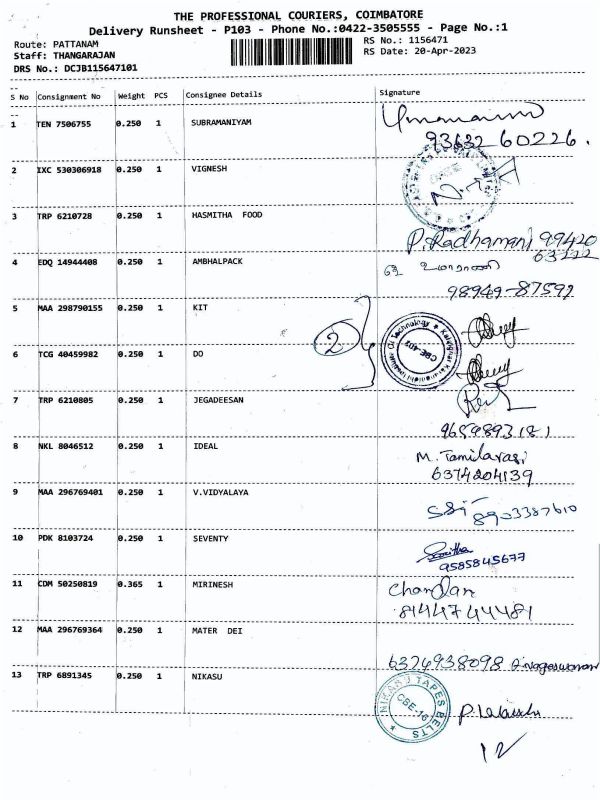 THE PROFESSIONAL COURIERS, COIMBATORE
Delivery Runsheet - P103 - Phone No.:0422-3505555 - Page No.:1
Route: PATTANAM
RS No.: 1156471
Staff: THANGARAJAN
RS Date: 20-Apr-2023
DRS No.: DCJB115647101
S No Consignment No Weight PCS Consignee Details Signature
1 TEN 7506755 0.250 1 SUBRAMANIYAM
93632 60226.
2 IXC 530306918 0.250 1 VIGNESH
3 TRP 6210728 0.250 1 HASMITHA FOOD
P. Radhamani 99420
63222
4 EDQ 14944408 0.250 1 AMBHALPACK
உமாராணி
98949-87592
5 MAA 298790155 0.250 1 KIT
2
CBE-402
6 TCG 40459982 0.250 1 DO
7 TRP 6210805 0.250 1 JEGADEESAN
9659893181
8 NKL 8046512 0.250 1 IDEAL
M. Tamilarasi
6374204139
9 MAA 296769401 0.250 1 V.VIDYALAYA
8903387610
10 PDK 8103724 0.250 1 SEVENTY
9585845677
11 CDM 50250819 0.365 1 MIRINESH
Chandan
8144744481
12 MAA 296769364 0.250 1 MATER DEI
6374938098
13 TRP 6891345 0.250 1 NIKASU
NIKASU TAPES BELTS
CBE-16
12